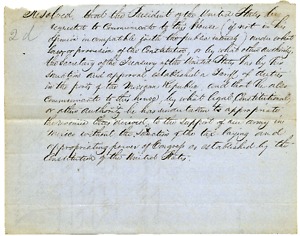 Resolved, that the President of the United States be
requested to Communicate to this House, (if not in his
opinion incompatible with the public interest) under what
Law or provision of the Constitution, or by what other authority,
the Secretary of the Treasury of the United States has by his
Sanction and approval established a Tariff of duties
in the ports of the Mexican Republic and that he also
communicate to this house, by what legal, Constitutional,
or other Authority he has undertaken to appropriate
the revenue thus derived, to the support of our army in
Mexico without the Sanction of the tax laying and
appropriating power of Congress as established by the
Constitution of the United States.
2d